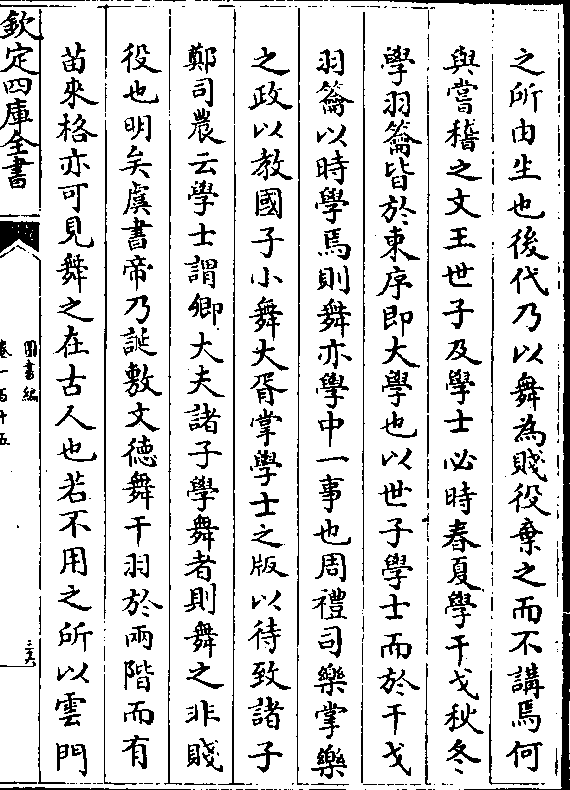 之所由生也後代乃以舞為賤役棄之而不講焉何
與嘗稽之文王世子及學士必時春夏學干戈秋冬
學羽籥皆於東序即大學也以世子學士而於干戈
羽籥以時學焉則舞亦學中一事也周禮司樂掌樂
之政以教國子小舞大胥掌學士之版以待致諸子
鄭司農云學士謂卿大夫諸子學舞者則舞之非賤
役也明矣虞書帝乃誕敷文德舞干羽於兩階而有
苗來格亦可見舞之在古人也若不用之所以雲門
欽定四庫全書
圖書編
卷一百十五
三六